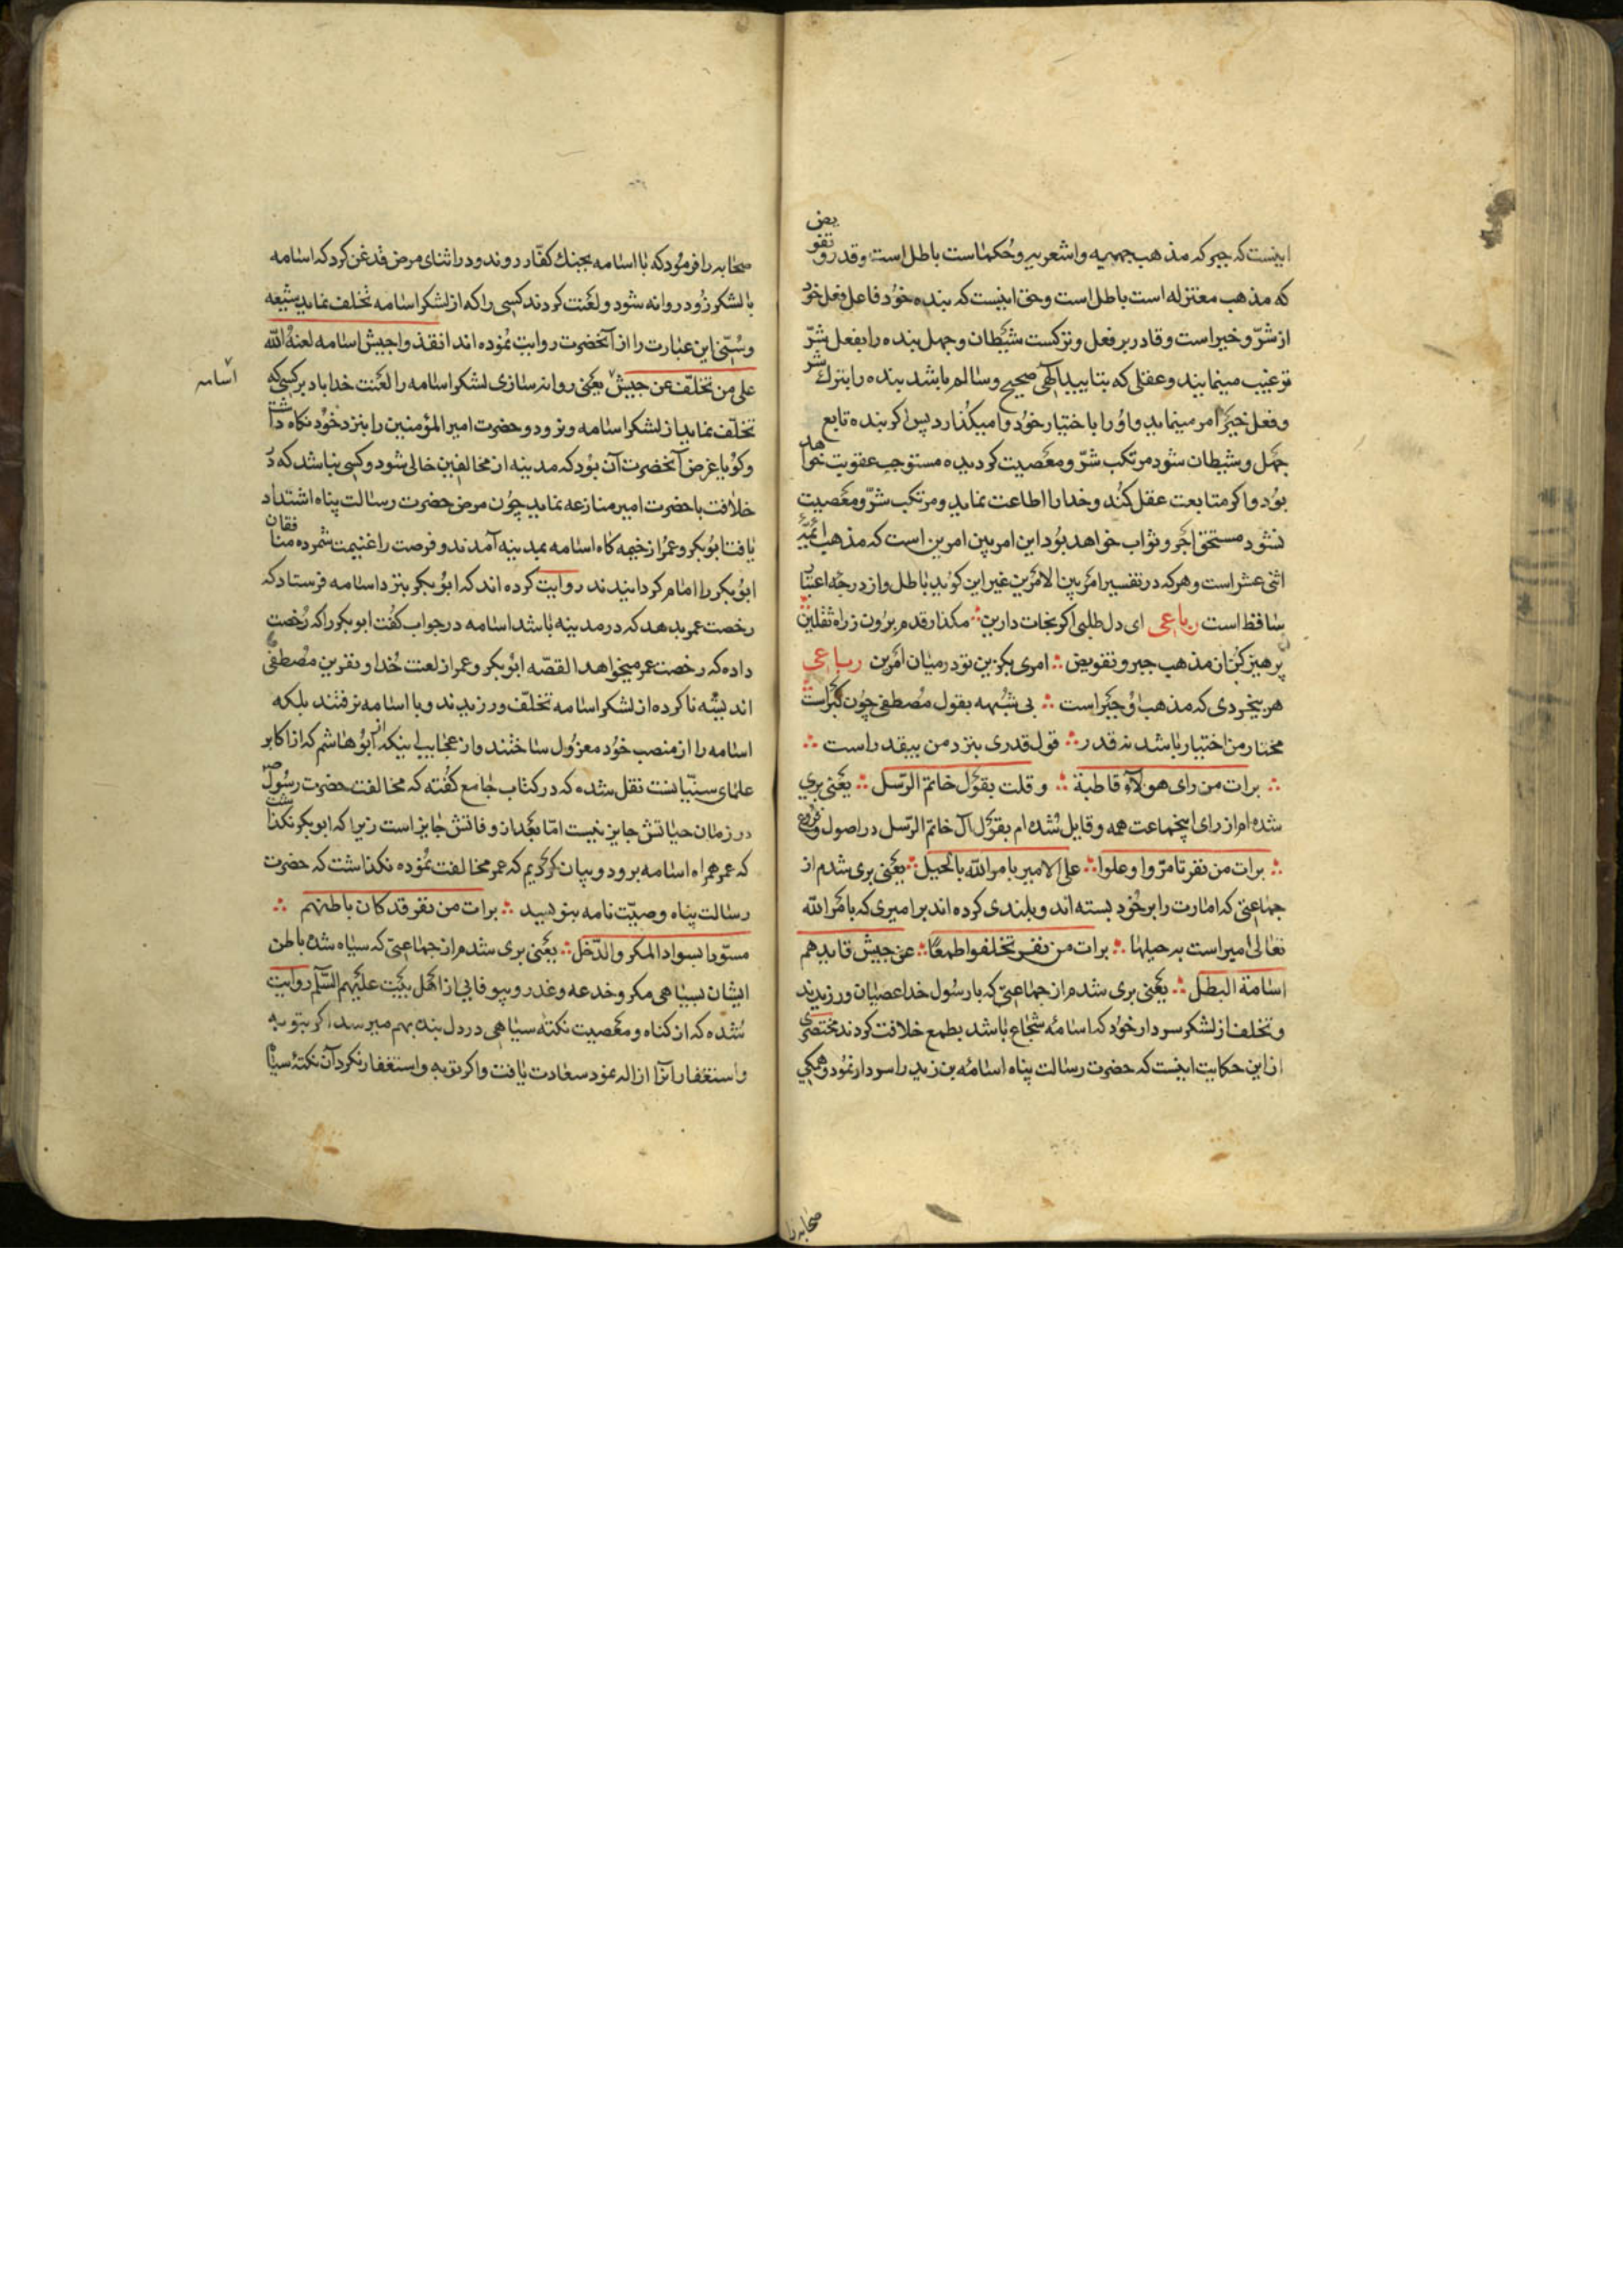 اینست که جبر که مذهب جهمیه و اشعریه و حکماست باطل است و قدر و تفویض
که مذهب معتزله است باطل است و حق اینست که بنده خود فاعل فعل خود
از شرّ و خیر است و قادر بر فعل و ترکست شیطان و جهل بنده را بفعل شرّ
ترغیب مینمایند و عقلی که بتایید الهی صحیح و سالم باشد بنده را بترک شر
و فعل خیر امر مینماید و او را باختیار خود وامیکذارد پس اکر بنده تابع
جهل و شیطان شود مرتکب شرّ و معصیت کردیده مستوجب عقوبت خواهد
بود و اکر متابعت عقل کند و خدا را اطاعت نماید و مرتکب شرّ و معصیت
نشود مستحق اجر و ثواب خواهد بود این امر بین امرین است که مذهب ائمّهٔ
اثنی عشر است و هر که در تفسیر امر بین الامرین غیر این کوید باطل و از درجه اعتبار
ساقط است رباعی ای دل طلبی اکر نجات دارین ∴ مکذار قدم برون ز راه ثقلین
پرهیز کن از مذهب جبر و تفویض ∴ امری بکزین تو در میان امرین رباعی
هر بیخردی که مذهب او جبر است ∴ بی شبهه بقول مصطفی چون کبر است
مختار من اختیار باشد نه قدر ∴ قول قدری بنزد من بیقدر است ∴
∴ برات من رای هولاء قاطبة ∴ وقلت بقول خاتم الرّسل ∴ یعنی بری
شده ام از رای اینجماعت همه و قایل شده ام بقول آل خاتم الرّسل در اصول و فروع
∴ برات من نفر تامّروا وعلوا ∴ علی الامیر بامر الله بالحیل ∴ یعنی بری شدم از
جماعتی که امارت را بر خود بسته اند و بلندی کرده اند بر امیری که بامر الله
تعالی امیر است به حیلها ∴ برات من نفر تخلفوا طمعًا ∴ عن جیش قایدهم
اسامة البطل ∴ یعنی بری شدم از جماعتی که با رسول خدا عصیان ورزیدند
و تخلف از لشکر سردار خود که اسامهٔ شجاع باشد بطمع خلافت کردند مختصری
از این حکایت اینست که حضرت رسالت پناه اسامهٔ بن زید را سردار نمود و همکی
صحابه را
صحابه را فرمود که با اسامه بجنك کفّار روند و در اثنای مرض قدغن کرد که اسامه
با لشکر زود روانه شود و لعنت کردند کسی را که از لشکر اسامه تخلف نماید شیعه
و سنّی این عبارت را از آنحضرت روایت نموده اند انفذوا جیش اسامه لعنة الله
علی من تخلّف عن جیش یعنی روانه سازی لشکر اسامه را لعنت خدا باد بر کسی که
اسامه
تخلّف نماید از لشکر اسامه و نرود و حضرت امیر المؤمنین را بنزد خود نکاه داشت
و کویا غرض آنحضرت آن بود که مدینه از مخالفین خالی شود و کسی نباشد که در
خلافت با حضرت امیر منازعه نماید چون مرض حضرت رسالت پناه اشتداد
یافت ابوبکر و عمر از خیمه کاه اسامه بمدینه آمدند و فرصت را غنیمت شمرده منافقان
ابوبکر را امام کردانیدند روایت کرده اند که ابوبکر بنزد اسامه فرستاد که
رخصت عمر بدهد که در مدینه باشد اسامه در جواب کفت ابوبکر را که رخصت
داده که رخصت عمر میخواهد القصّه ابوبکر و عمر از لعنت خدا و نفرین مصطفی
اندیشه ناکرده از لشکر اسامه تخلّف ورزیدند و با اسامه نرفتند بلکه
اسامه را از منصب خود معزول ساختند و از عجایب اینکه از ابوهاشم که از اکابر
علمای سنّیانست نقل شده که در کتاب جامع کفته که مخالفت حضرت رسول
در زمان حیاتش جایز نیست امّا بعد از وفاتش جایز است زیرا که ابوبکر نکذاشت
که عمر همراه اسامه برود و بیان کردیم که عمر مخالفت نموده نکذاشت که حضرت
رسالت پناه وصیّت نامه بنویسد ∴ برات من نفر قد کان باطنهم ∴
مسوّدا بسواد المکر والدّخل ∴ یعنی بری شدم از جماعتی که سیاه شده باطن
ایشان بسیاهی مکر و خدعه و غدر و بیوفایی از اهل بیت علیهم السّلم روایت
شده که از کناه و معصیت نکتهٔ سیاهی در دل بنده بهم میرسد اکر بتوبه
و استغفار آنرا ازاله نمود سعادت یافت و اکر توبه و استغفار نکرد آن نکتهٔ سیاه